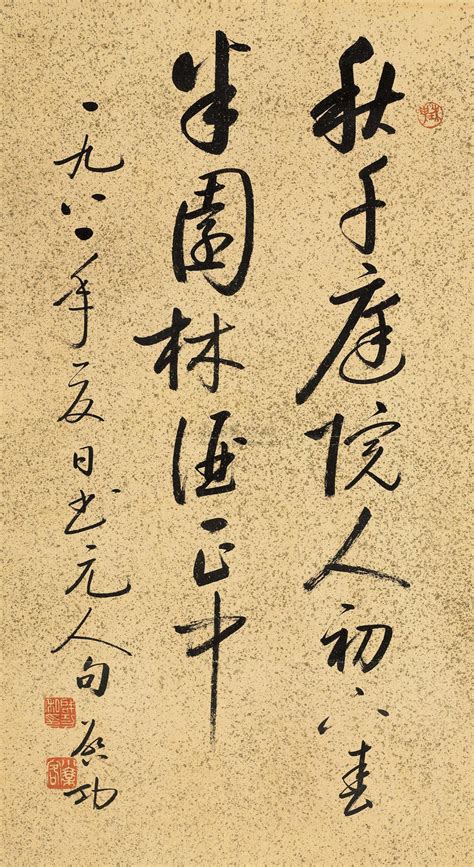 秋千庭院人初下春
半園林酒正中
一九八二年夏日书元人句
启功